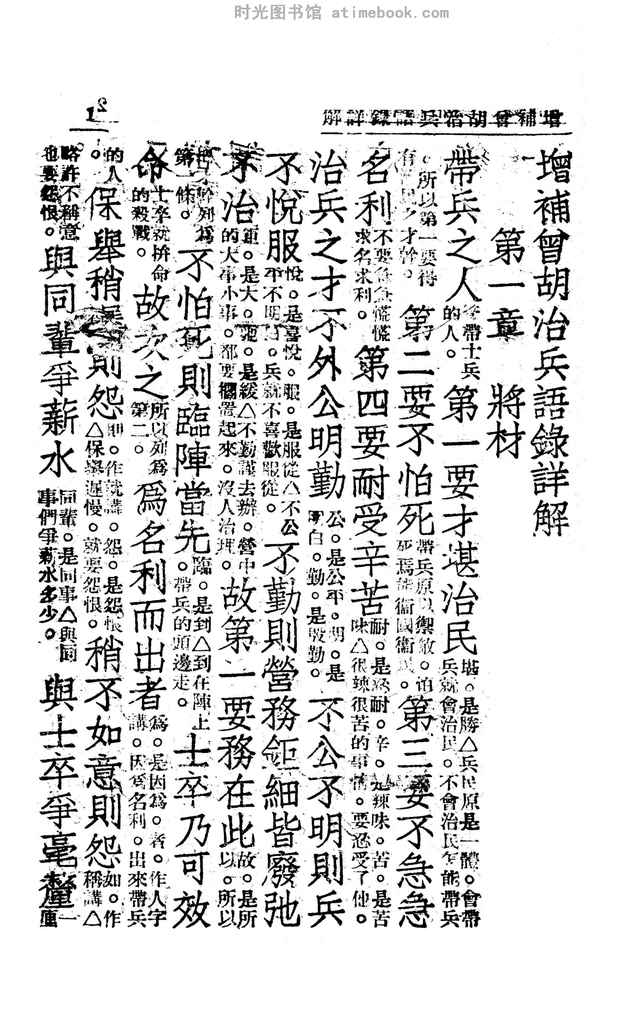 时光图书馆 · atimebook.com
增補曾胡治兵語錄詳解
增補曾胡治兵語錄詳解
第一章 將材
帶兵之人帶士兵的人。第一要才堪治民堪。是勝△兵民原是一體。會帶兵就會治民。不會治民怎能帶兵
。所以第一要得有才幹。第二要不怕死帶兵原以禦敵。怕死焉能衞國衞民。第三要不急急
名利不要急急慌慌求名求利。第四要耐受辛苦耐。是忍耐。辛。是辣味。苦。是苦味△很辣很苦的事情。要忍受了他。
治兵之才不外公明勤公。是公平。明。是明白。勤。是殷勤。不公不明則兵
不悅服悅。是喜悅。服。是服從△不公平不明白。兵就不喜歡服從。不勤則營務鉅細皆廢弛
不治鉅。是大。弛。是緩△不勤謹去辦。營中的大事小事。都要擱置起來。沒人治理。故第一要務在此故。是所以。所以
才幹列爲第一條。不怕死則臨陣當先臨。是到△到在陣上。帶兵的頭邊走。士卒乃可效
命士卒就拚命的殺戰。故次之所以列爲第二。爲名利而出者爲。是因爲。者。作人字講。因爲名利。出來帶兵
的人。保舉稍遲則怨則。作就講。怨。是怨恨△保舉遲慢。就要怨恨。稍不如意則怨如。作稱講△
略許不稱意。也要怨恨。與同輩爭薪水同輩。是同事△與同事們爭薪水多少。與士卒爭毫釐一厘